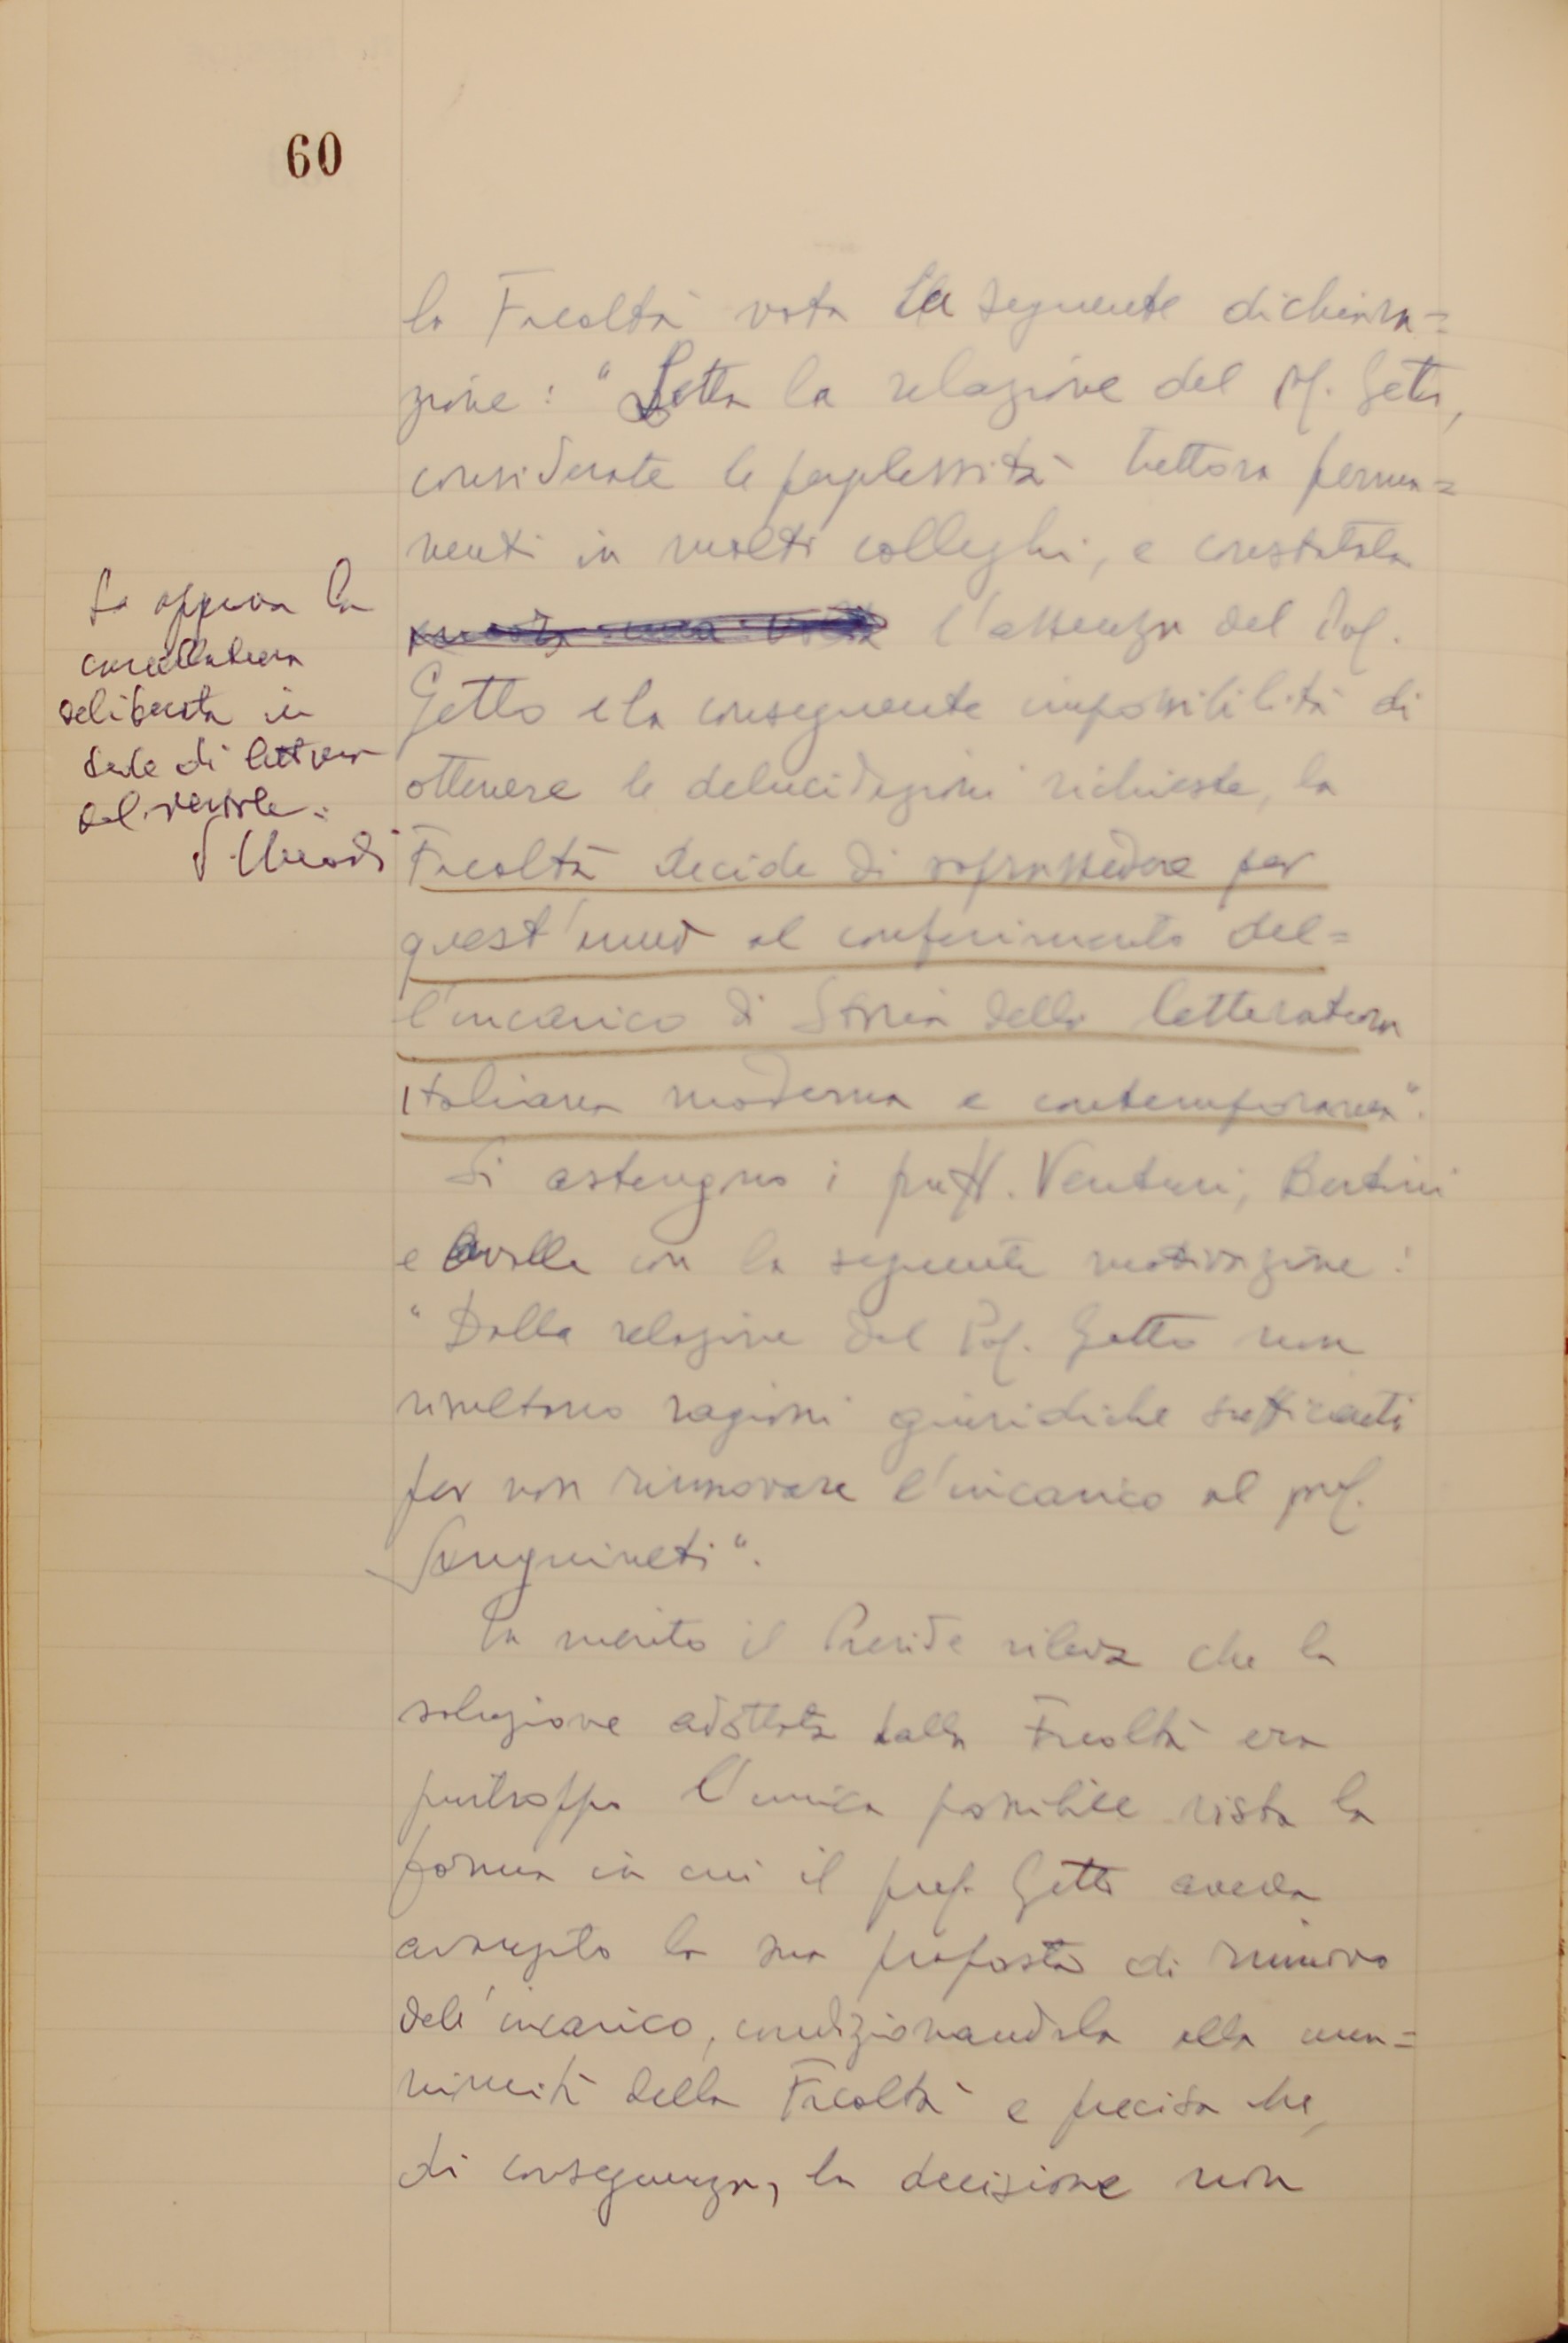 60
la Facoltà vota la seguente dichiara=
zione: "Letta la relazione del Prof. Getto,
considerate le perplessità tuttora perma=
nenti in molti colleghi, e constatata
l'assenza del Prof.
Getto e la conseguente impossibilità di
ottenere le delucidazioni richieste, la
Facoltà decide di soprassedere per
quest'anno al conferimento del=
l'incarico di Storia della letteratura
italiana moderna e contemporanea".
Si astengono i proff. Venturi, Bertini
e Avalle con la seguente motivazione:
"Dalla relazione del Prof. Getto non
risultano ragioni giuridiche sufficienti
per non rinnovare l'incarico al prof.
Sanguineti".
In merito il Preside rileva che la
soluzione adottata dalla Facoltà era
purtroppo l'unica possibile vista la
forma in cui il prof. Getto aveva
avanzato la sua proposta di rinnovo
dell'incarico, condizionandola alla una=
nimità della Facoltà e precisa che,
di conseguenza, la decisione non
Si approva la
cancellatura
deliberata in
sede di lettura
del verbale.